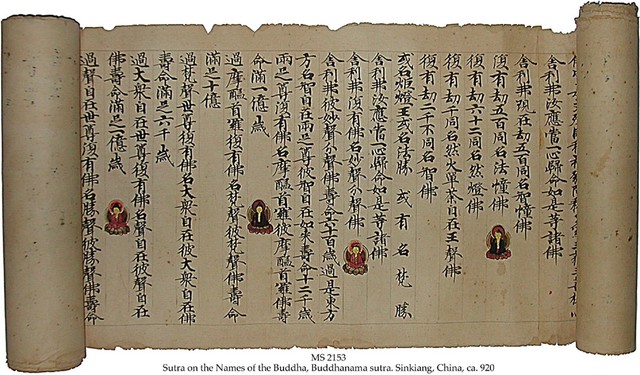 舍利弗汝應當一心歸命如是等諸佛
舍利弗現在劫五百同名智幢佛
復有劫五百同名法幢佛
復有劫六十二同名然燈佛
復有劫千同名然火單荼自在王聲佛
復有劫二千不同名智佛
或名燈王或名法勝 或有名梵勝
舍利弗汝應當一心歸命如是等諸佛
舍利弗復有佛名妙聲分聲佛
舍利弗彼妙聲分聲佛壽命六十百歲過是東方
方名智自在兩足尊彼智自在如來壽命十二千歲
兩足尊復有佛名摩醯首羅彼摩醯首羅佛壽
命滿一億歲
過摩醯首羅復有佛名梵聲彼梵聲佛壽命
滿足十億
過梵聲世尊復有佛名大衆自在彼大衆自在佛
壽命滿足六千歲
過大衆自在世尊復有佛名聲自在彼聲自在
佛壽命滿足一億歲
過聲自在世尊復有佛名勝聲彼勝聲佛壽命
MS 2153
Sutra on the Names of the Buddha, Buddhanama sutra. Sinkiang, China, ca. 920